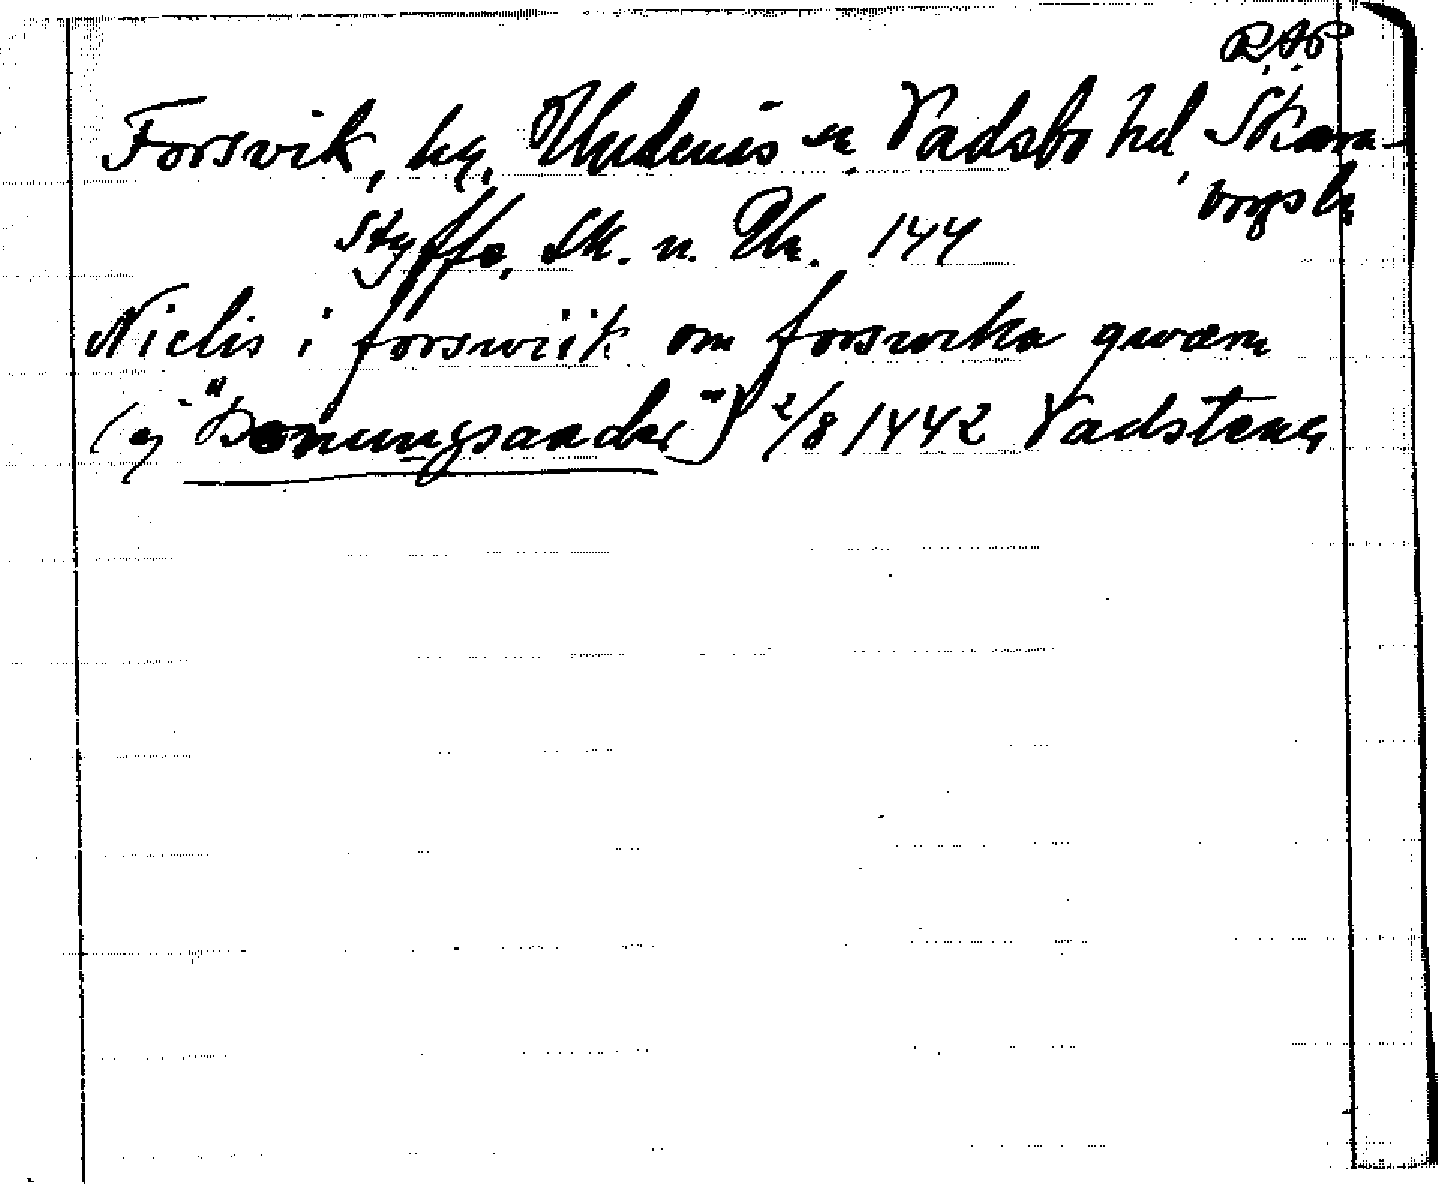 R.A.P.
Forsvik, by, Undenäs sn, Vadsbo hd, Skara-
borgs ln
Styffe, Sk. u. Un. 144
Niclis i forswiik om forswika qwærn
(ej "Bonungsandhe") 2/8 1442 Vadstena